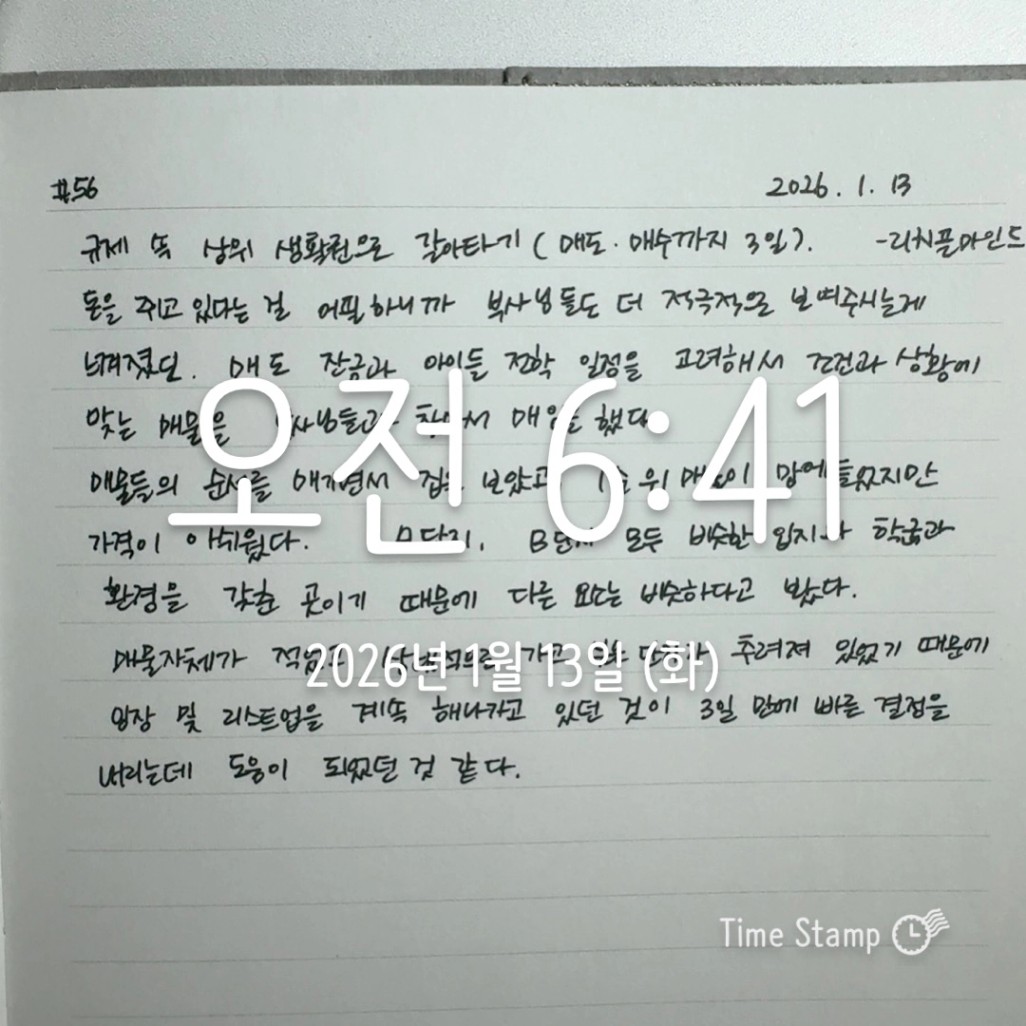 #56
2026. 1. 13
규제 속 상위 생활권으로 갈아타기 (매도·매수까지 3일). -리치플마인드
돈을 쥐고 있다는 걸 어필하니까 부사님들도 더 적극적으로 보여주시는게
느껴졌던. 매도 잔금과 아이들 전학 일정을 고려해서 조건과 상황에
맞는 매물을 했다
오전 6:41
매물들의 순서를 매기면서 집을 보았고 1순위 매물이 맘에 들었지만
가격이 아쉬웠다. A단지, B단지 모두 비슷한 입지나 학군과
환경을 갖춘 곳이기 때문에 다른 요소는 비슷하다고 봤다.
매물자체가 추려져 있었기 때문에
2026년 1월 13일 (화)
임장 및 리스트업을 계속 해나가고 있던 것이 3일 만에 빠른 결정을
내리는데 도움이 되었던 것 같다.
Time Stamp